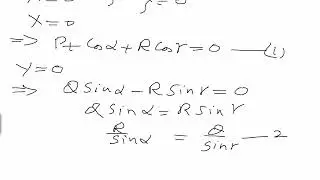 X=0
=> P+ Cosα+RCosr=0 —(1)
Y=0
=> QSinα-RSinr=0
QSinα=RSinr
R/Sinα = Q/Sinr —2